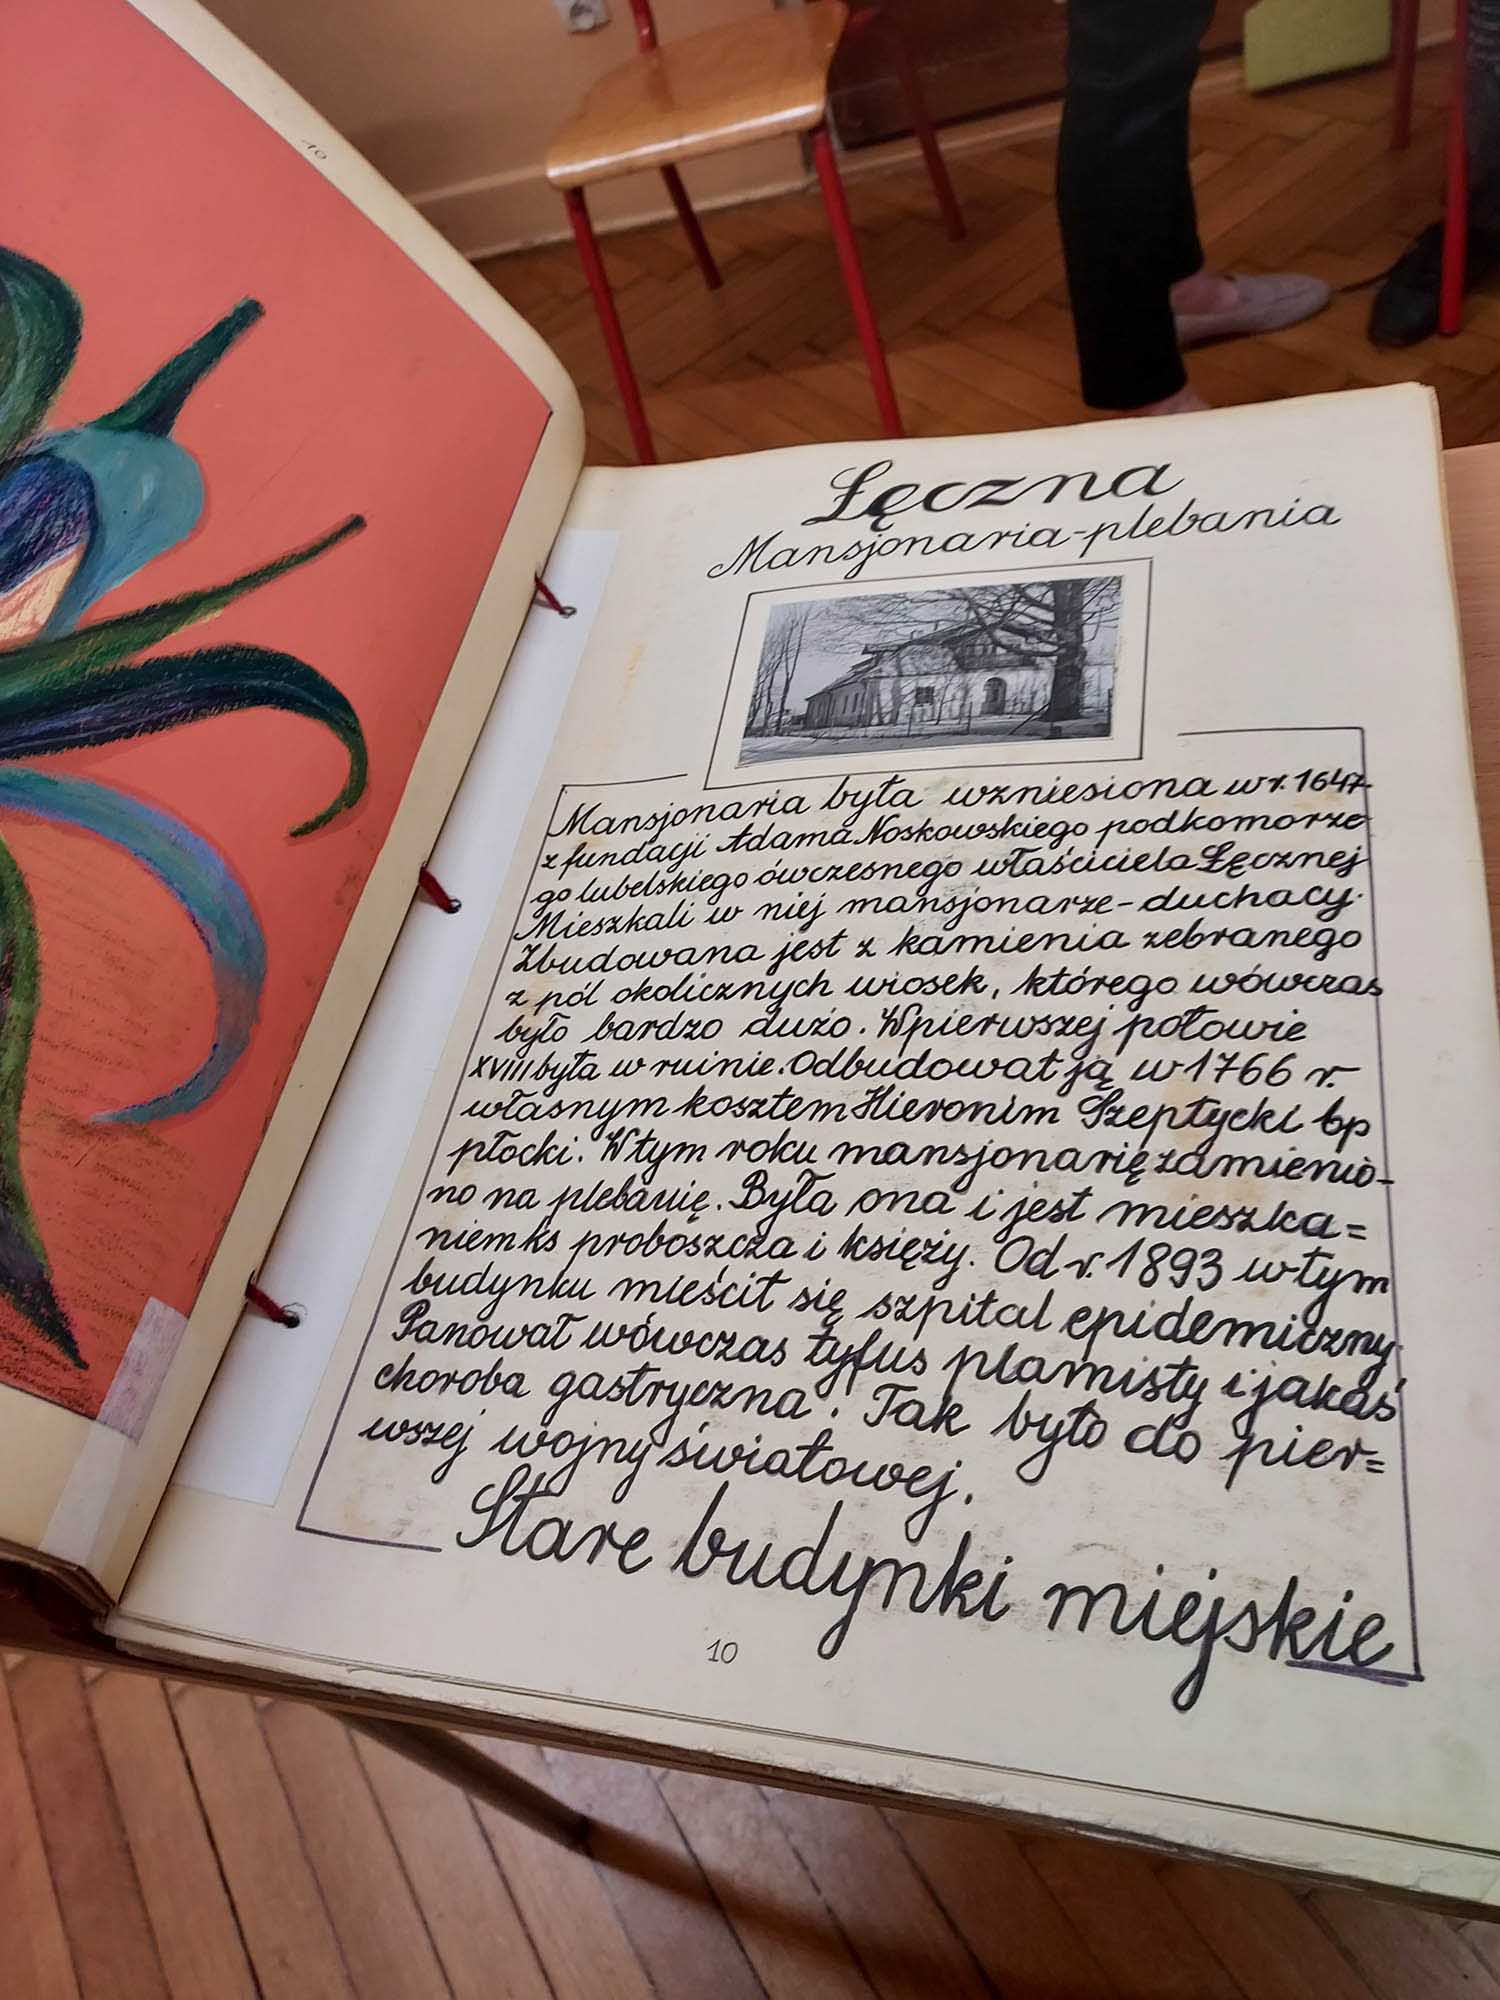 10
Łęczna
Mansjonaria-plebania
Mansjonaria była wzniesiona w r. 1647
z fundacji Adama Noskowskiego podkomorze
go lubelskiego ówczesnego właściciela Łęcznej
Mieszkali w niej mansjonarze-duchacy.
Zbudowana jest z kamienia zebranego
z pól okolicznych wiosek, którego wówczas
było bardzo dużo. W pierwszej połowie
XVIII była w ruinie. Odbudował ją w 1766 r.
własnym kosztem Hieronim Szeptycki bp
płocki. W tym roku mansjonarię zamienio-
no na plebanię. Była ona i jest mieszka=
niem ks proboszcza i księży. Od r. 1893 w tym
budynku mieścił się szpital epidemiczny.
Panował wówczas tyfus plamisty i jakaś
choroba gastryczna. Tak było do pier=
wszej wojny światowej.
Stare budynki miejskie
10